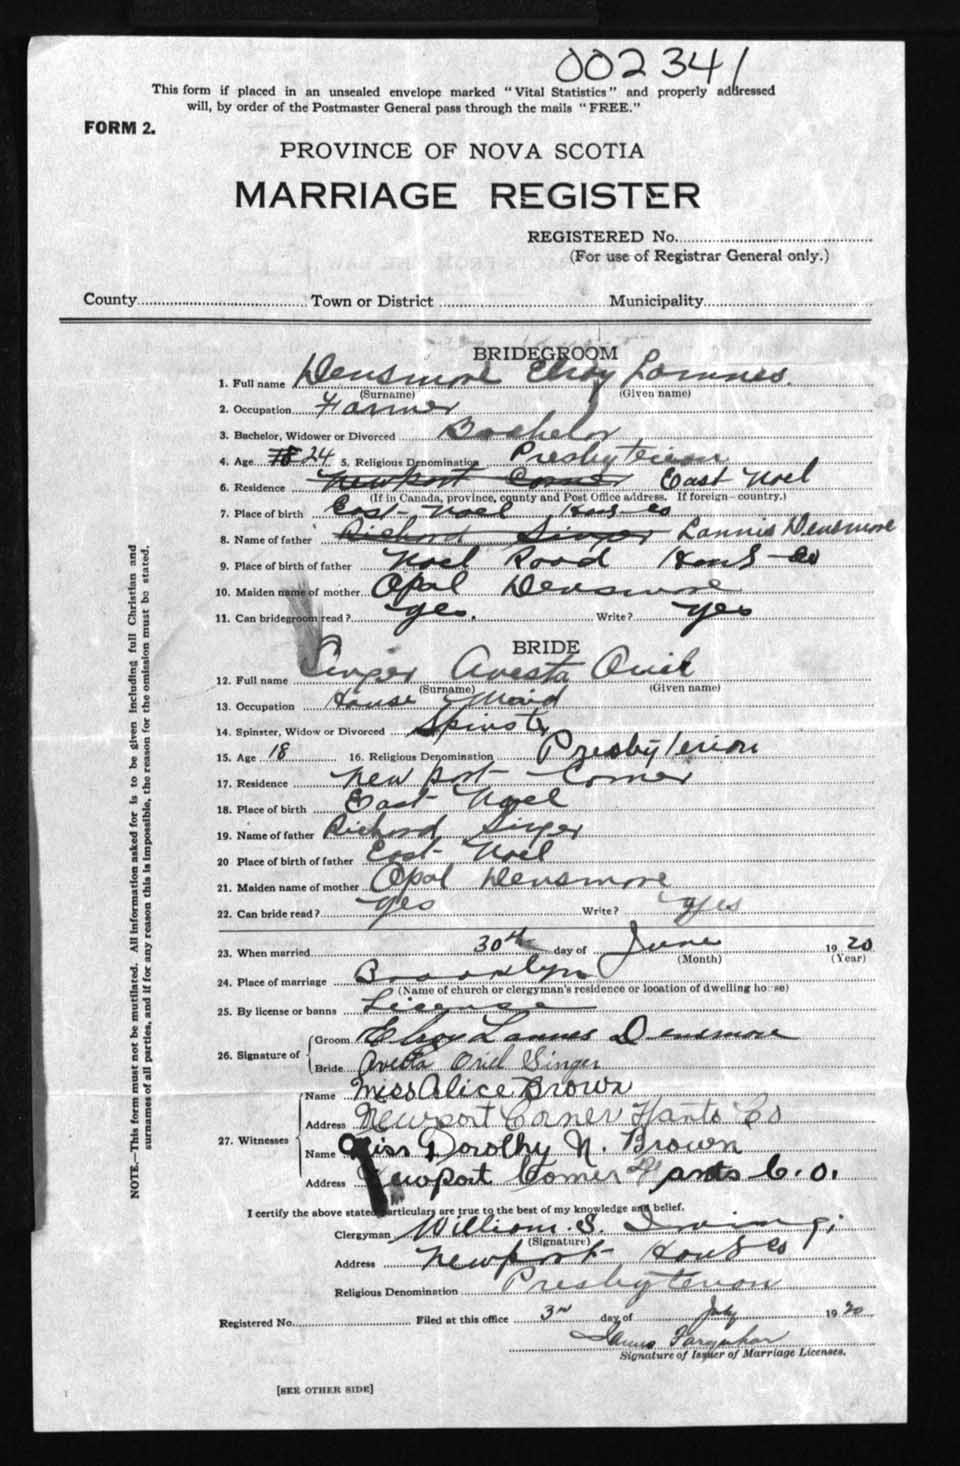 002341
This form if placed in an unsealed envelope marked "Vital Statistics" and properly addressed
will, by order of the Postmaster General pass through the mails "FREE."
FORM 2.
PROVINCE OF NOVA SCOTIA
MARRIAGE REGISTER
REGISTERED No.
(For use of Registrar General only.)
County Town or District Municipality
BRIDEGROOM
1. Full name Densmore Elroy Lannes
(Surname) (Given name)
2. Occupation Farmer
3. Bachelor, Widower or Divorced Bachelor
4. Age 18 24 5. Religious Denomination Presbyterian
6. Residence Newport Corner East Noel
(If in Canada, province, county and Post Office address. If foreign—country.)
7. Place of birth East Noel Hants Co
8. Name of father Richard Singer Lannis Densmore
9. Place of birth of father Noel Road Hants Co
10. Maiden name of mother Opal Densmore
11. Can bridegroom read? yes. Write? yes
BRIDE
12. Full name Singer Avesta Oriel
(Surname) (Given name)
13. Occupation House Maid
14. Spinster, Widow or Divorced Spinster
15. Age 18 16. Religious Denomination Presbyterian
17. Residence New port Corner
18. Place of birth East Noel
19. Name of father Richard Singer
20 Place of birth of father East Noel
21. Maiden name of mother Opal Densmore
22. Can bride read? yes Write? yes
23. When married 30th day of June 1920
(Month) (Year)
24. Place of marriage Brooklyn
(Name of church or clergyman's residence or location of dwelling house)
25. By license or banns License
26. Signature of Groom Elroy Lannes Densmore
Bride Avesta Oriel Singer
27. Witnesses Name Miss Alice Brown
Address Newport Corner Hants Co
Name Miss Dorothy N. Brown
Address Newport Corner Hants C.O.
I certify the above stated particulars are true to the best of my knowledge and belief.
Clergyman William. S. Irving
(Signature)
Address Newport Hants Co
Religious Denomination Presbyterian
Registered No. Filed at this office 3rd day of July 1920
Farquhar
Signature of Issuer of Marriage Licenses.
[SEE OTHER SIDE]
NOTE.—This form must not be mutilated. All information asked for is to be given including full Christian and
surnames of all parties, and if for any reason this is impossible, the reason for the omission must be stated.